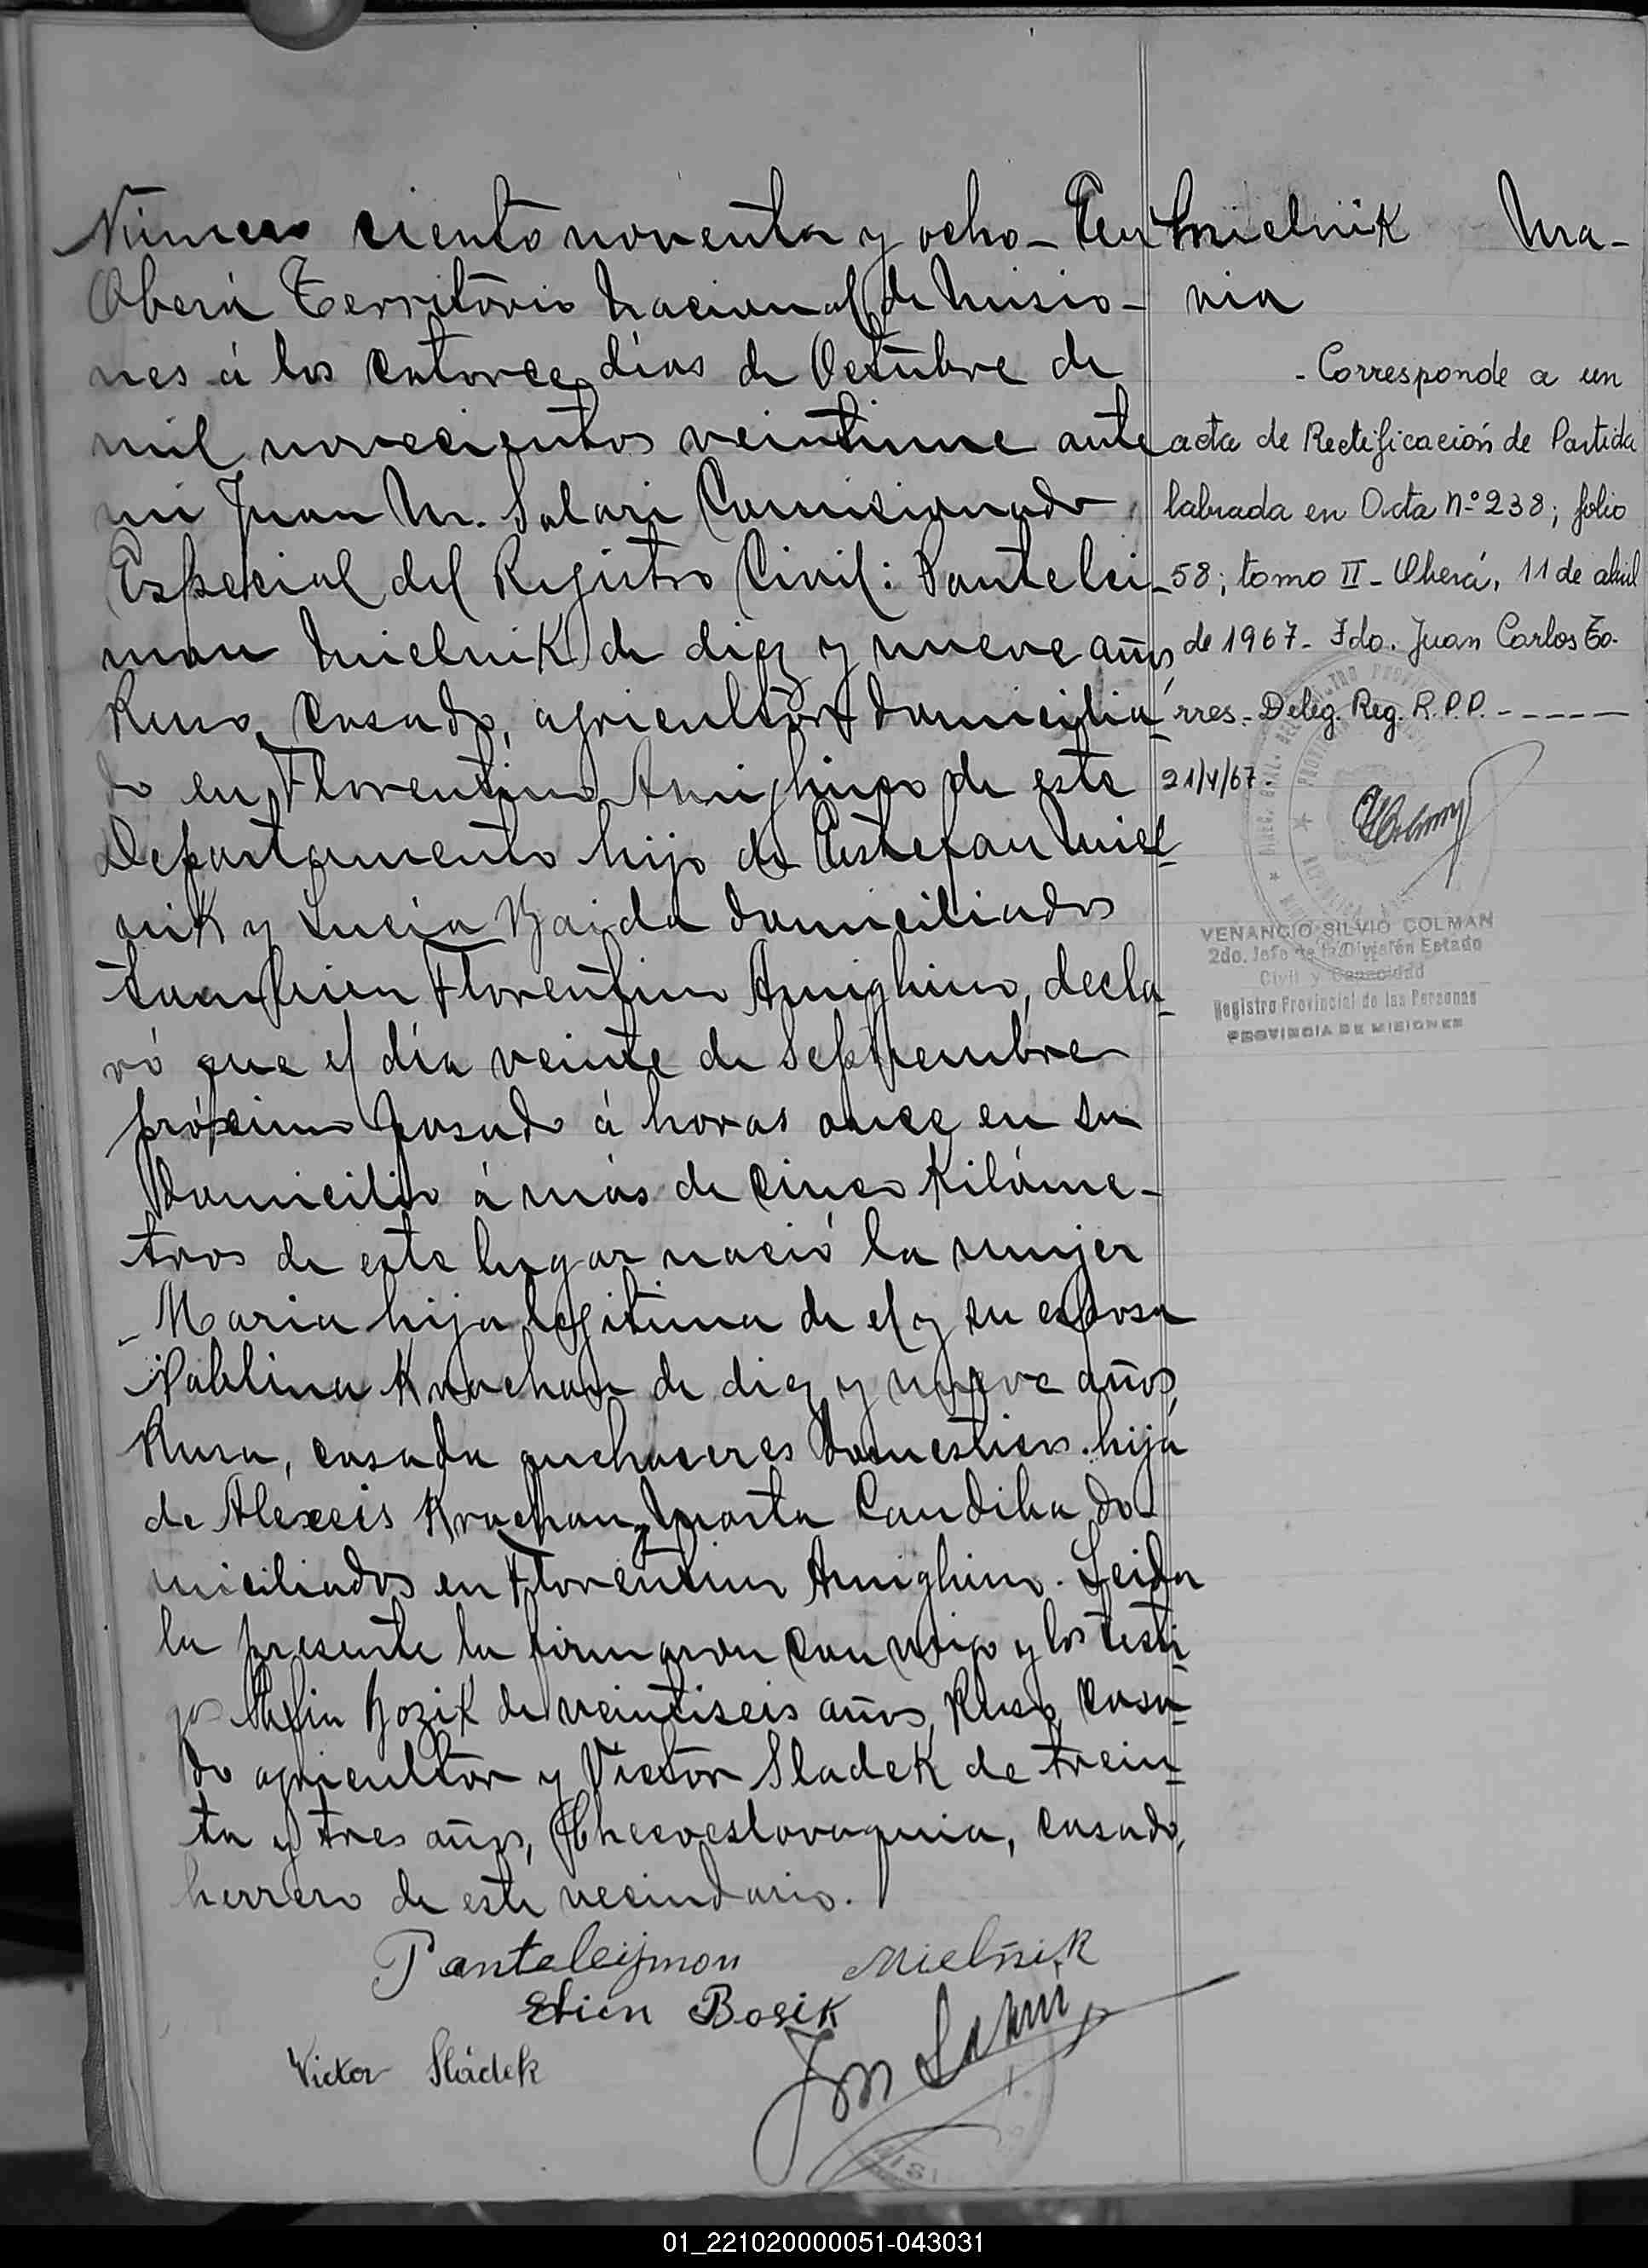 Número ciento noventa y ocho - En
Oberá Territorio Nacional de Misio-
nes á los catorce días de Octubre de
mil novecientos veintinue ante
mi Juan M. Salari Comisionado
Especial del Registro Civil: Pantelei-
mon Mielnik de diez y nueve años,
Ruso, casado, agricultor domicilia-
do en Florentino Amighino de este
Departamento hijo de Estefan Miel-
nik y Lucia Baida domiciliados
tambien Florentino Amighino, decla-
ró que el día veinte de Septiembre
próximo pasado á horas once en su
domicilio á más de cinco Kilóme-
tros de este lugar nació la mujer
Maria hija legitima de el y su esposa
Pablina Krachan de diez y nueve años,
Rusa, casada quehaceres domesticos. hija
de Alexeis Krachan y Marta Candiba do
miciliados en Florentino Amighino. Leida
la presente la firmaron con migo y los testi-
gos Bozik de veintiseis años, Ruso, casa-
do agricultor y Victor Sladek de trein-
ta y tres años, Checoeslovaquia, casado,
herrero de este vecindario.
Panteleijmon Mielnik
Bosik
Victor Sládek
Mielnik Ma-
ria
- Corresponde a un
acta de Rectificación de Partida
labrada en Acta nº 238; folio
58; tomo II - Oberá, 11 de abril
de 1967 - Fdo. Juan Carlos To-
rres - Deleg. Reg. R.P.P. - - - - -
21/4/67.
VENANCIO SILVIO COLMAN
2do. Jefe de la División Estado
Civil y Capacidad
Registro Provincial de las Personas
PROVINCIA DE MISIONES
01_221020000051-043031